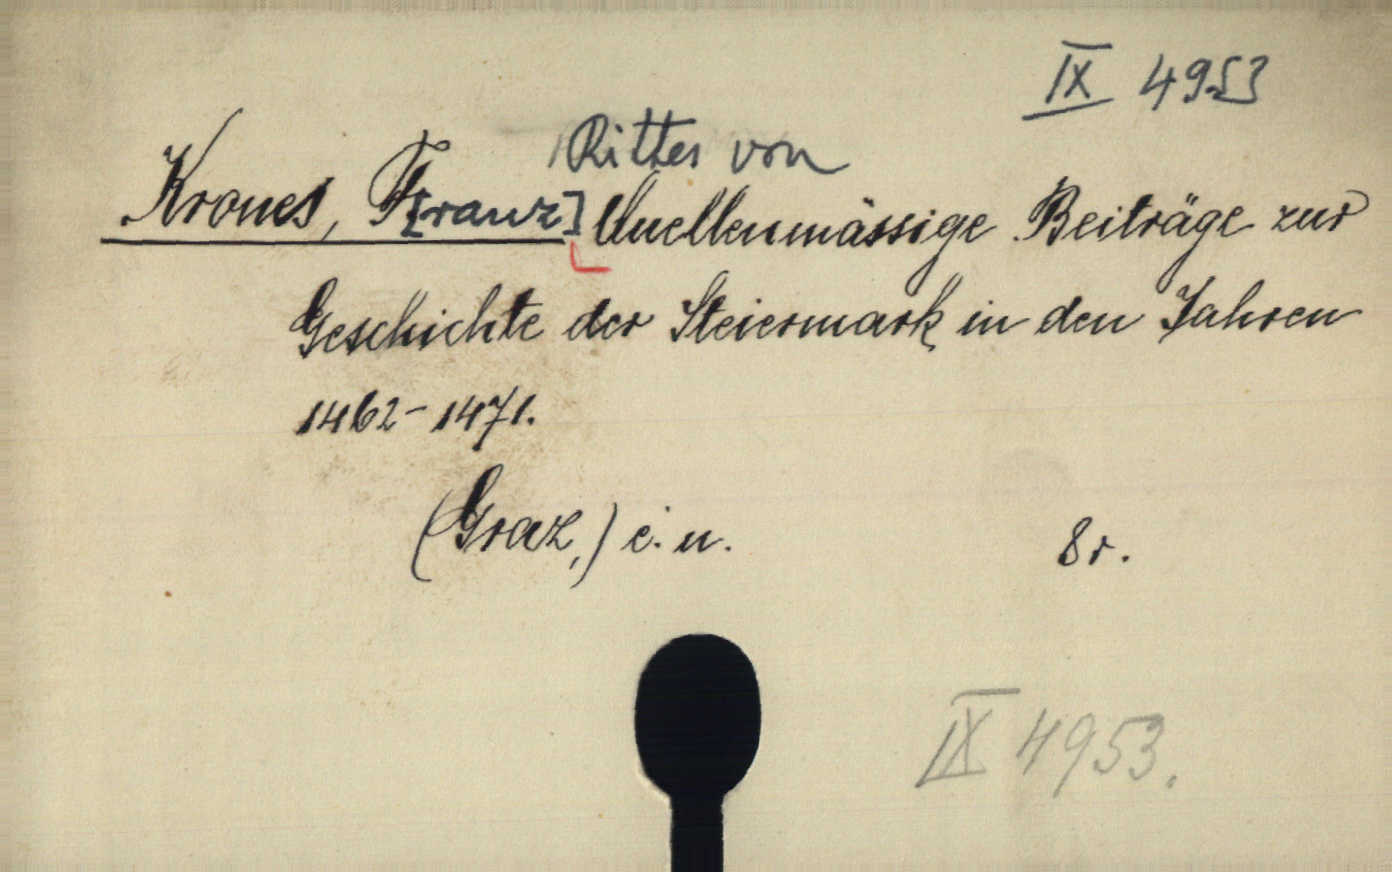 IX 4953
Ritter von
Krones, F[ranz] Quellenmässige Beiträge zur
Geschichte der Steiermark in den Jahren
1462-1471.
(Graz,) é. n.
8r.
IX 4953.